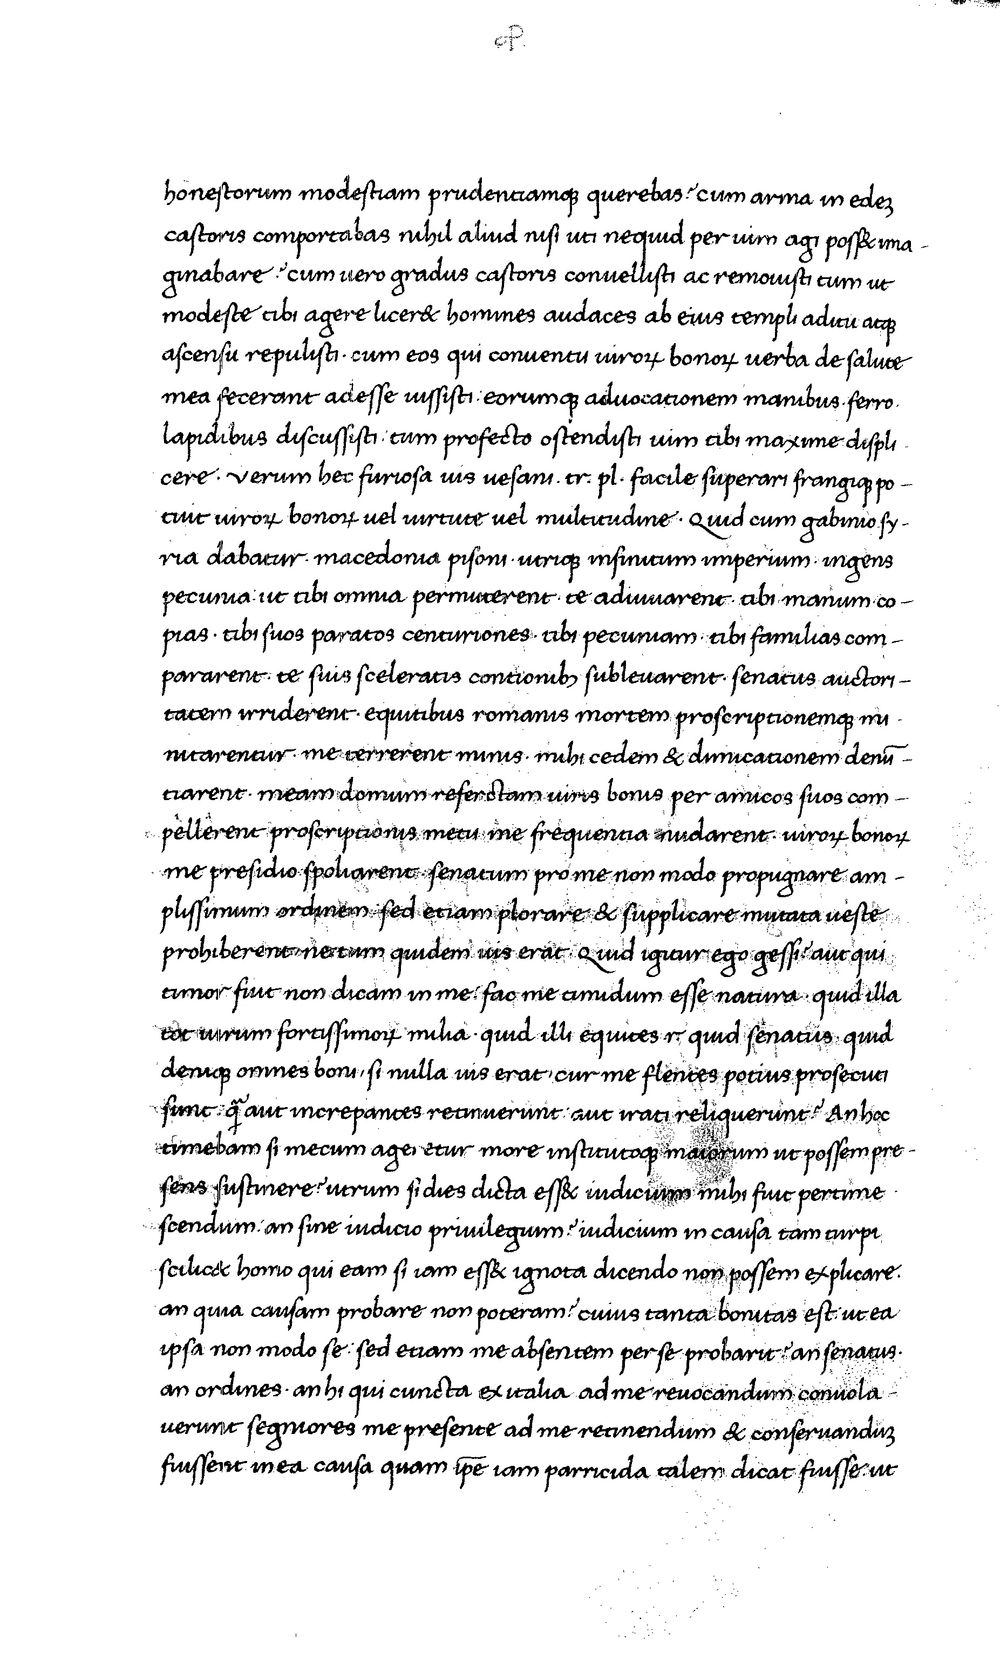 honestorum modestiam prudentiamq; querebas? cum arma in edeʒ
castoris comportabas nihil aliud nisi uti nequid per uim agi poss& ima-
ginabare? cum uero gradus castoris conuellisti ac remouisti tum ut
modeste tibi agere licer& homines audaces ab eius templi aditu atq;
ascensu repulisti · cum eos qui conuentu uiroꝝ bonoꝝ uerba de salute
mea fecerant adesse iussisti · eorumq; aduocationem manibus · ferro ·
lapidibus discussisti · tum profecto ostendisti uim tibi maxime displi
cere · Verum hec furiosa uis uesani · tr · pl · facile superari frangiq; po-
tuit uiroꝝ bonoꝝ uel uirtute uel multitudine · Quid cum gabinio sy-
ria dabatur · macedonia pisoni · utriq; infinitum imperium · ingens
pecunia: ut tibi omnia permitterent · te adiuuarent · tibi manum · co-
pias · tibi suos paratos centuriones · tibi pecuniam · tibi familias com-
pararent · te suis sceleratis contionibꝫ subleuarent · senatus auctori-
tatem irriderent · equitibus romanis mortem proscriptionemq; mi-
nitarentur · me terrerent minis · mihi cedem & dimicationem denū-
tiarent · meam domum referctam uiris bonis per amicos suos com-
pellerent proscriptionis metu me frequentia nudarent · uiroꝝ bonoꝝ
me presidio spoliarent · senatum pro me non modo propugnare am-
plissimum ordinem · sed etiam plorare & supplicare mutata ueste
prohiberent · ne tum quidem uis erat · Quid igitur ego gessi? aut qui
timor fuit non dicam in me? fac me timidum esse natura · quid illa
tot uirum fortissimoꝝ milia · quid illi equites r · quid senatus · quid
deniq; omnes boni, si nulla uis erat, cur me flentes potius prosecuti
sunt · q̃ aut increpantes retinuerunt · aut irati reliquerunt? An hoc
timebam si mecum ageretur more institutoq; maiorum ut possem pre-
sens sustinere? utrum si dies dicta ess& iudicium mihi fuit pertime
scendum: an sine iudicio priuilegium? iudicium in causa tam turpi
scilic& homo qui eam si iam ess& ignota dicendo non possem explicare ·
an quia causam probare non poteram? cuius tanta bonitas est ut ea
ipsa non modo se: sed etiam me absentem per se probarit? an senatus ·
an ordines · an hi qui cuncta ex italia ad me reuocandum conuola-
uerunt segniores me presente ad me retinendum & conseruanduʒ
fuissent in ea causa quam ip̄e iam parricida talem dicat fuisse: ut